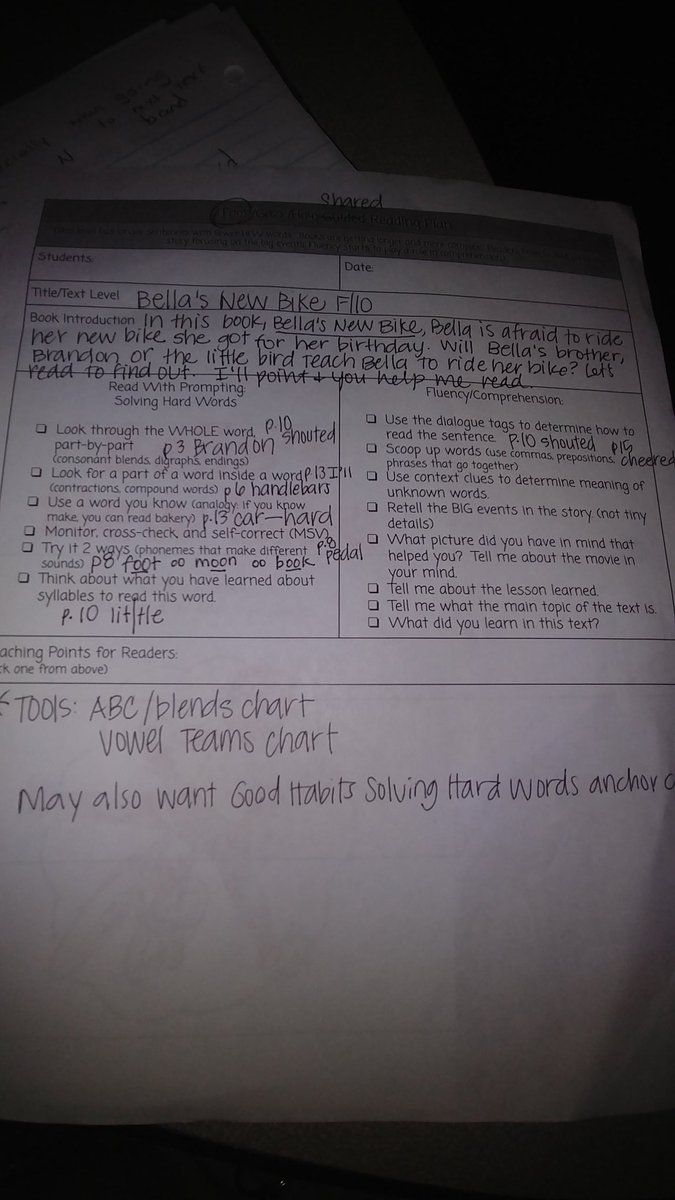 Shared
Guided Reading Plan
Students:
Date:
Title/Text Level Bella's New Bike F/10
Book Introduction In this book, Bella's New Bike, Bella is afraid to ride
her new bike she got for her birthday. Will Bella's brother,
Brandon or the little bird teach Bella to ride her bike? Let's
read to find out. I'll point + you help me read.
Read With Prompting:
Solving Hard Words
Look through the WHOLE word, p.10 shouted
part-by-part p3 Brandon
(consonant blends, digraphs, endings)
Look for a part of a word inside a word p13 I'll
(contractions, compound words) p6 handlebars
Use a word you know (analogy: if you know
make, you can read bakery) p.13 car—hard
Monitor, cross-check, and self-correct (MSV) p.8 pedal
Try it 2 ways (phonemes that make different
sounds) p8 foot oo moon oo book
Think about what you have learned about
syllables to read this word.
p.10 lit/tle
Fluency/Comprehension:
Use the dialogue tags to determine how to
read the sentence p.10 shouted p15 cheered
Scoop up words (use commas, prepositions,
phrases that go together)
Use context clues to determine meaning of
unknown words.
Retell the BIG events in the story (not tiny
details)
What picture did you have in mind that
helped you? Tell me about the movie in
your mind.
Tell me about the lesson learned.
Tell me what the main topic of the text is.
What did you learn in this text?
aching Points for Readers:
ck one from above)
Tools: ABC/blends chart
Vowel Teams chart
May also want Good Habits Solving Hard Words anchor c